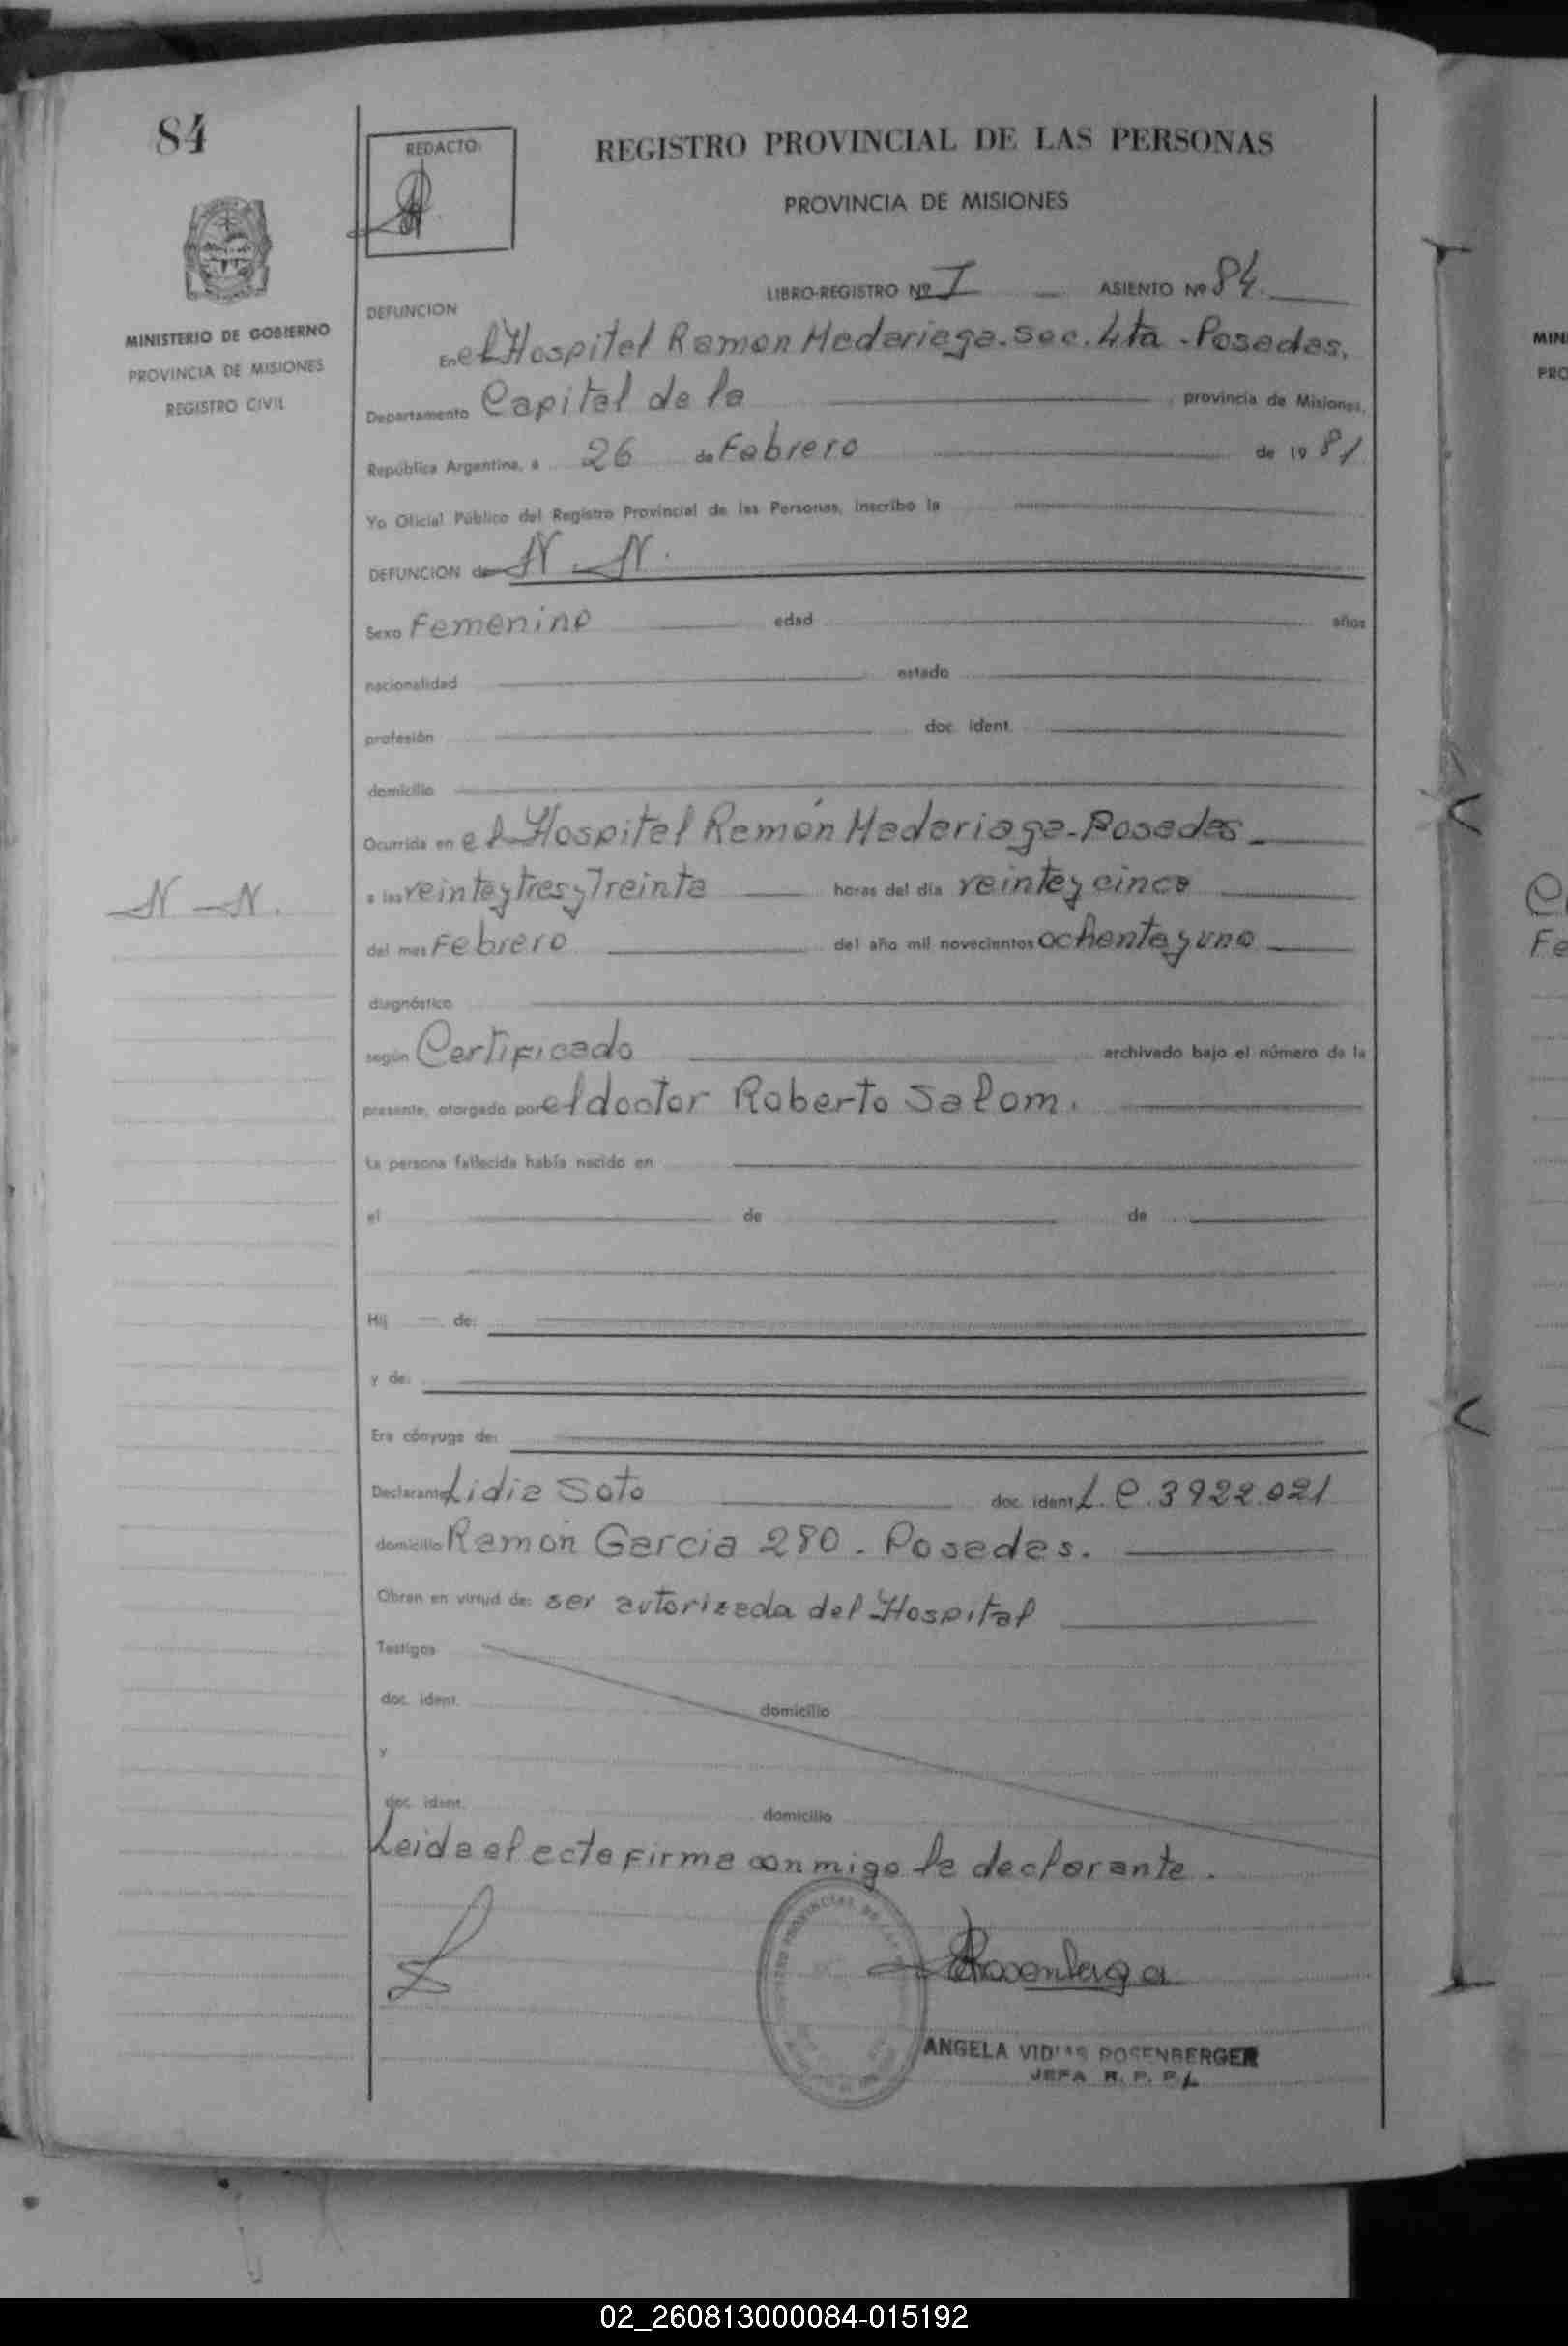 84
REDACTO:
REGISTRO PROVINCIAL DE LAS PERSONAS
PROVINCIA DE MISIONES
LIBRO-REGISTRO Nº I ASIENTO Nº 84.
MINISTERIO DE GOBIERNO
PROVINCIA DE MISIONES
REGISTRO CIVIL
DEFUNCION
En el Hospital Ramon Madariaga. Sec. 4ta - Posadas.
Departamento Capital de la provincia de Misiones,
República Argentina, a 26 de Febrero de 1981
Yo Oficial Público del Registro Provincial de las Personas, inscribo la
DEFUNCION de N. N.
Sexo Femenino edad años
nacionalidad estado
profesión doc. ident.
domicilio
Ocurrida en el Hospital Ramón Madariaga - Posadas
N - N.
a las veinte y tres y Treinta horas del día veinte y cinco
del mes Febrero del año mil novecientos ochenta y uno
diagnóstico
según Certificado archivado bajo el número de la
presente, otorgado por el doctor Roberto Salom.
La persona fallecida había nacido en
el de de
Hij de:
y de:
Era cónyuge de:
Declarante Lidia Soto doc. ident. L.C. 3922.021
domicilio Ramón Garcia 280 - Posadas.
Obran en virtud de: ser autorizada del Hospital
Testigos
doc. ident. domicilio
y
doc. ident. domicilio
Leida el acta firma conmigo la declarante.
ANGELA VIDIAS ROSENBERGER
JEFA R. P. P.
02_260813000084-015192